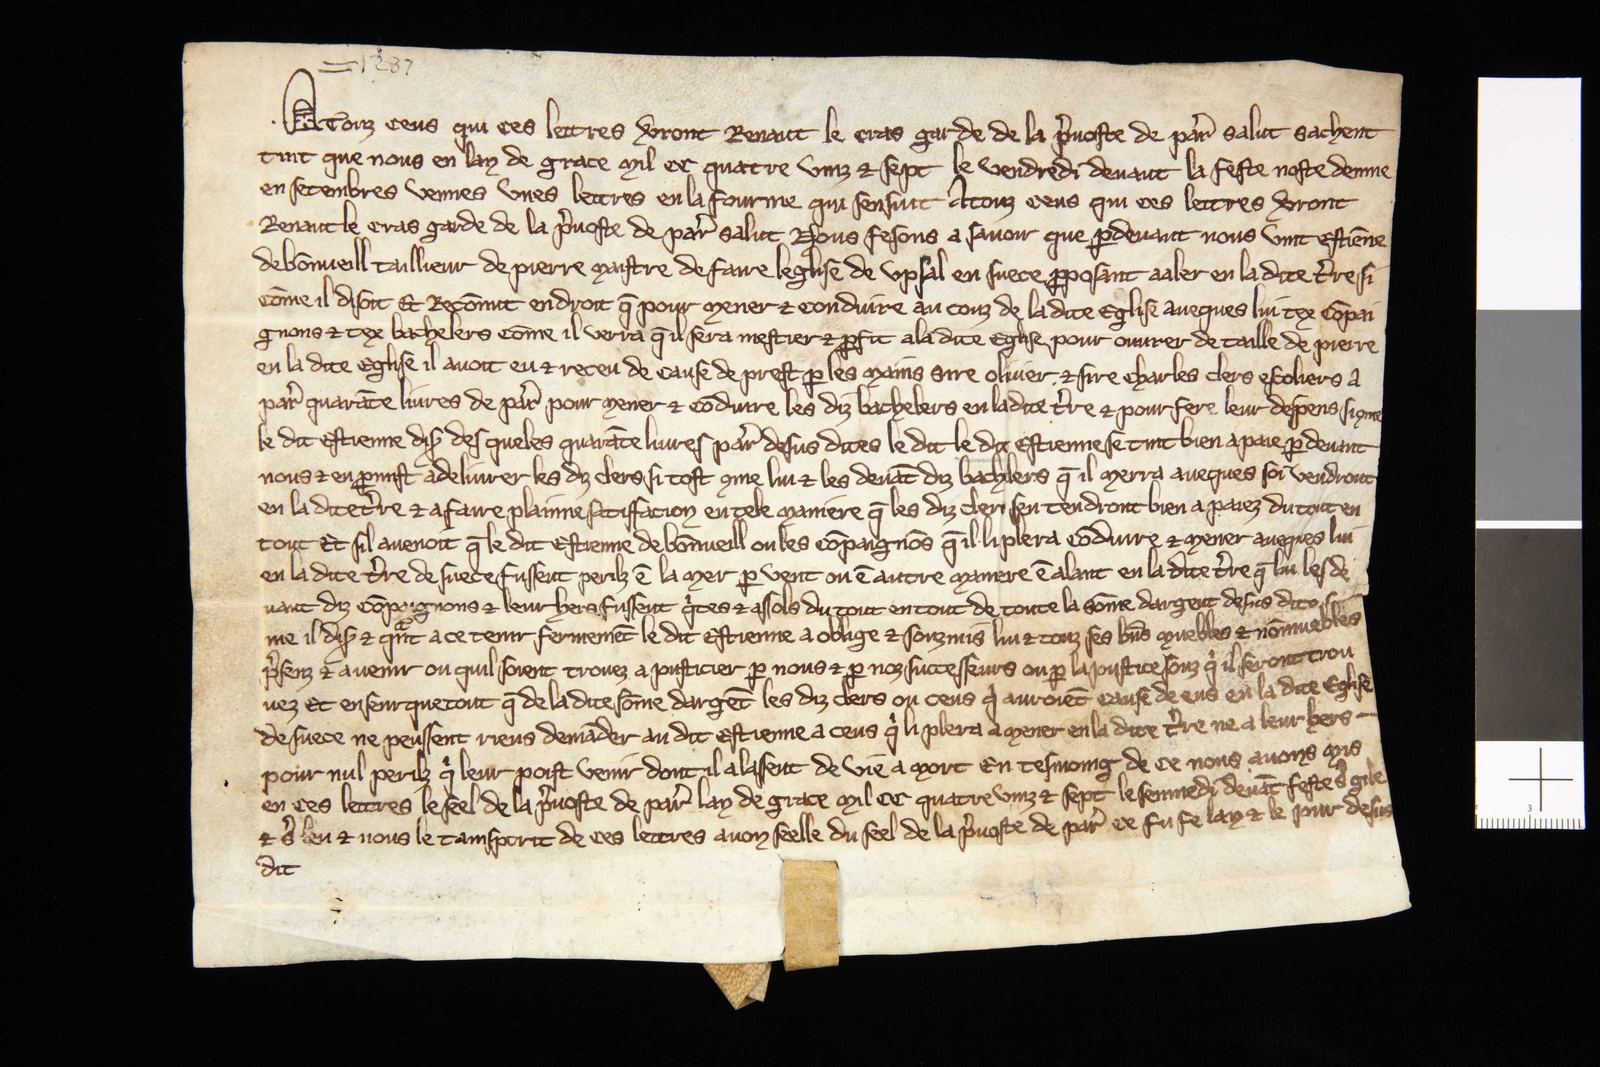 =1287
A Touz ceus qui ces lettres v̾ront Renaut le cras garde de la p̾uoste de par̾ salut sachent
tuit que nous en lan de grace Mil CC quatre vinz & sept le vendredi deuant la feste nostre demme
en setembres veimes vnes lettres en la fourme qui sensuit A touz ceus qui ces lettres v̾ront
Renaut le cras garde de la p̾uoste de par̾ salut Nous fesons a sauoir que ꝑ deuant nous vint Estiēne
de bōnueill taillieur de pierre maistre de faire leglise de Vpsal en suece ꝓposant a aler en la dite t̾re si
cōme il disoit Et Recōnut en droit q̄ pour mener & conduire au couz de la dite Eglise aueques lui tex cōpai
gnons & tex bachelers cōme il verra q̄ il sera mestier & ꝓfit a la dite Eglise pour ouurer de taille de pierre
en la dite Eglise il auoit eu & receu de cause de prest ꝑ les mains sire oliuier & sire Charles clers escoliers a
par̾ quarāte liures de par̾ pour mener & cōduire les diz bachelers en la dite t̾re & pour fere leur despens si 9me
le dit Estienne dis̾ des queles quarāte liures par̾ desus dites le dit le dit Estienne se tint bien a paie ꝑ deuant
nous & en ꝓmist a deliurer les diz clers si tost 9me lui & les deuāt diz bachlers q̄ il merra aueques soi vendront
en la dite t̾re & a faire plainne satisfacion en tele maniere q̄ les diz clers sen tendront bien a paiez du tout en
tout Et sil auenoit q̄ le dit Estienne de bōnueill ou les cōpaignōs q̄ il li plera cōduire & mener aueques lui
en la dite t̾re de suece fussent perilz ē la mer ꝑ vent ou ē autre maniere ē alant en la dite t̾re q̄ lui les de
uant diz cōpaignons & leur hers fussent q̾tes & assols du tout en tout de toute la sōme dargent desus dite si 9
me il dis̾ & q̄nt a ce tenir fermemēt le dit Estienne a oblige & souzmis lui & touz ses bn̄s muebles & nōmuebles
p̾senz & a venir ou quil soient trouez a iusticier ꝑ nous & ꝑ noz successeurs ou ꝑ la iustice souz q̾ il seront trou
uez Et enseurquetout q̄ de la dite sōme dargēt les diz clers ou ceus q̾ auroiēt cause de eus en la dite Eglise
de suece ne peussent riens demāder au dit Estienne a ceus q̾ li plera a mener en la dite t̾re ne a leur hers
pour nul perilz q̾ leur poist venir dont il alassent de vie a mort En tesmoing de ce nous auons mis
en ces lettres le seel de la p̾uoste de par̾ lan de grace Mil CC quatre vinz & sept le semmedi deuāt feste s̾ gile
& s̾ leu & nous le transcrit de ces lettres auon seelle du seel de la p̾uoste de par̾ Ce fu fe lan & le iour desus
dit